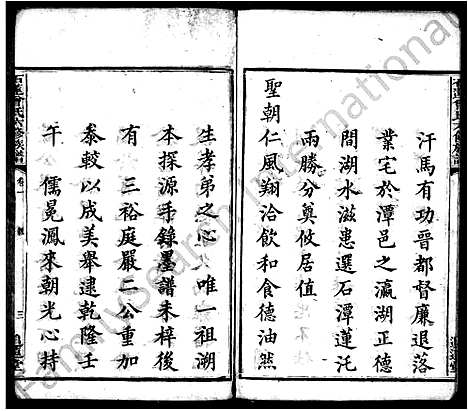 汗馬有功晉都督廉退落
業宅於潭邑之瀛湖正德
間湖水滋患選石潭蓮托
兩勝分奠攸居值
聖朝仁風翔洽飲和食德油然
生孝弟之心唯一祖溯
本探源手錄墨譜未梓後
有三裕庭嚴二公重加
泰較以成美舉逮乾隆壬
午儒冕渢來朝光心持
卷一
三
FamilySearch International